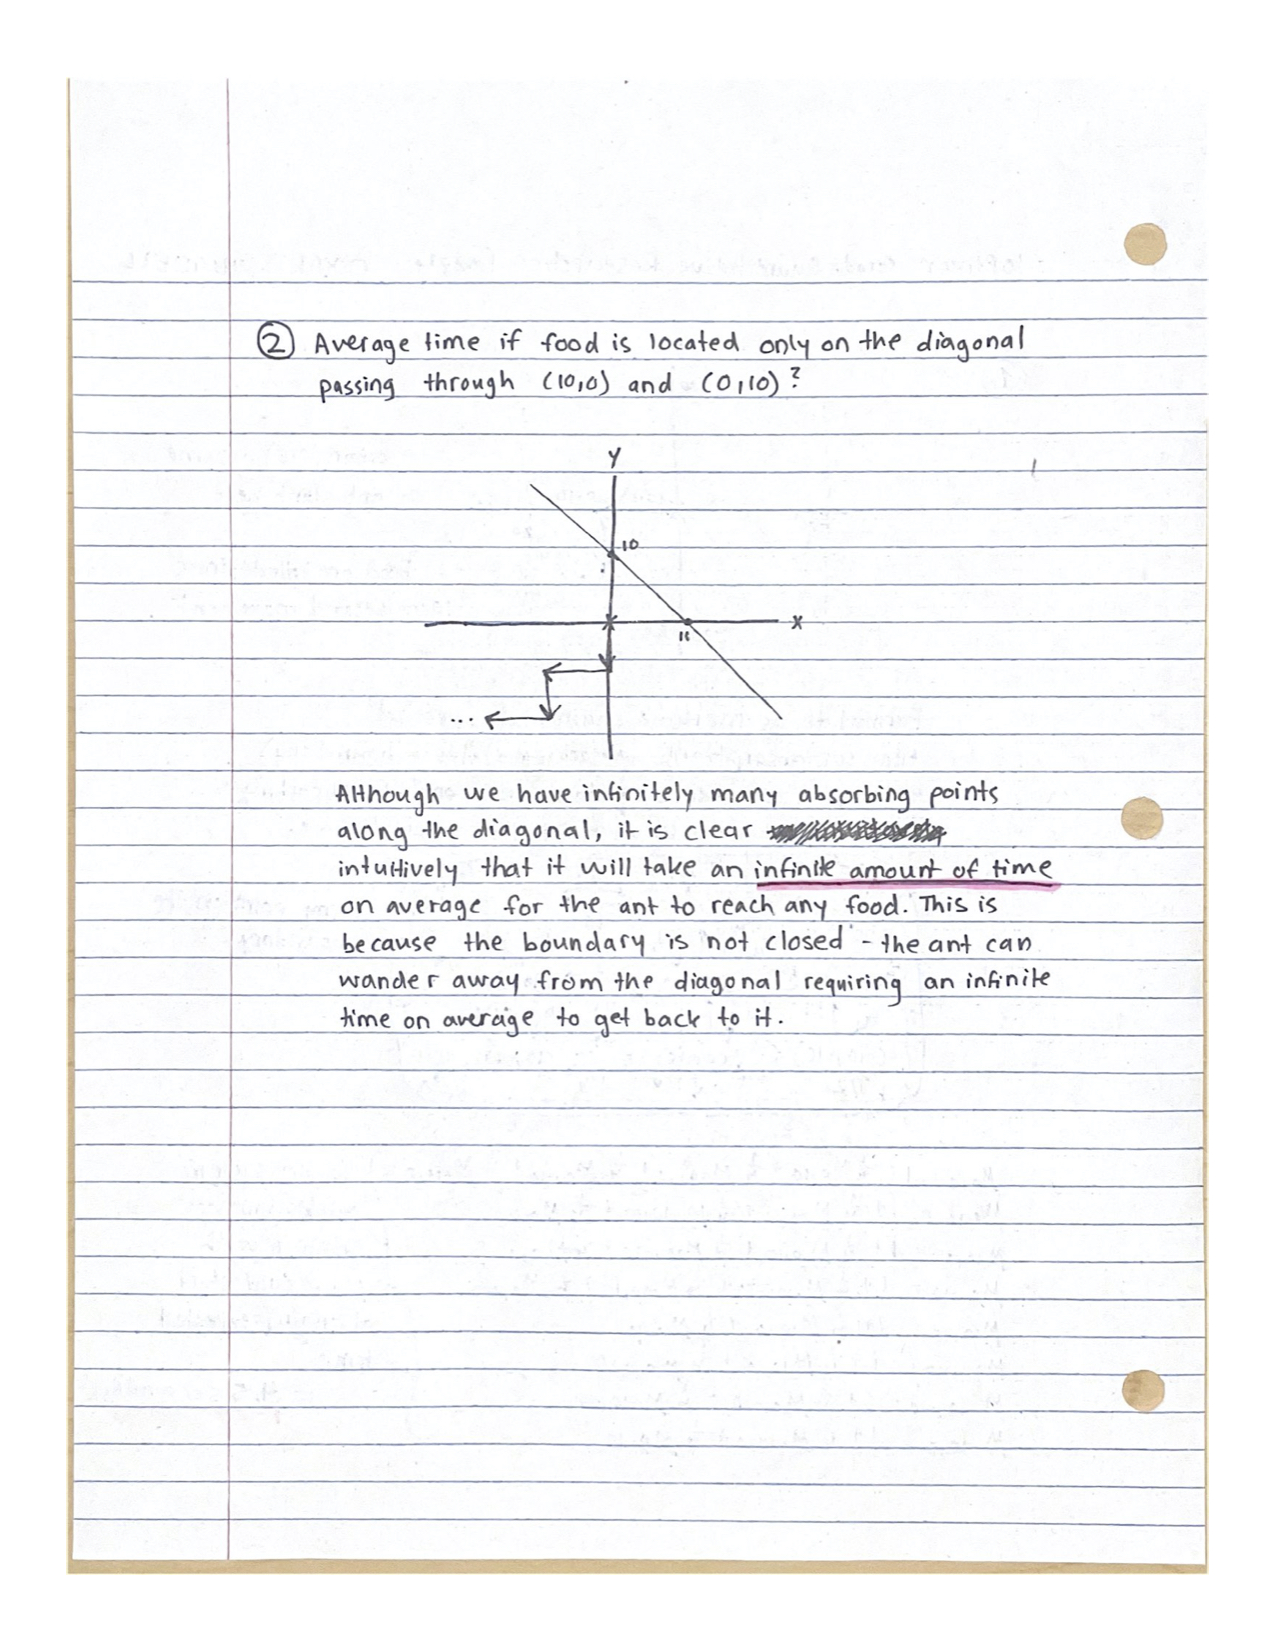 ② Average time if food is located only on the diagonal
passing through (10,0) and (0,10)?
Y
10
X
Although we have infinitely many absorbing points
along the diagonal, it is clear
intuitively that it will take an infinite amount of time
on average for the ant to reach any food. This is
because the boundary is not closed - the ant can
wander away from the diagonal requiring an infinite
time on average to get back to it.